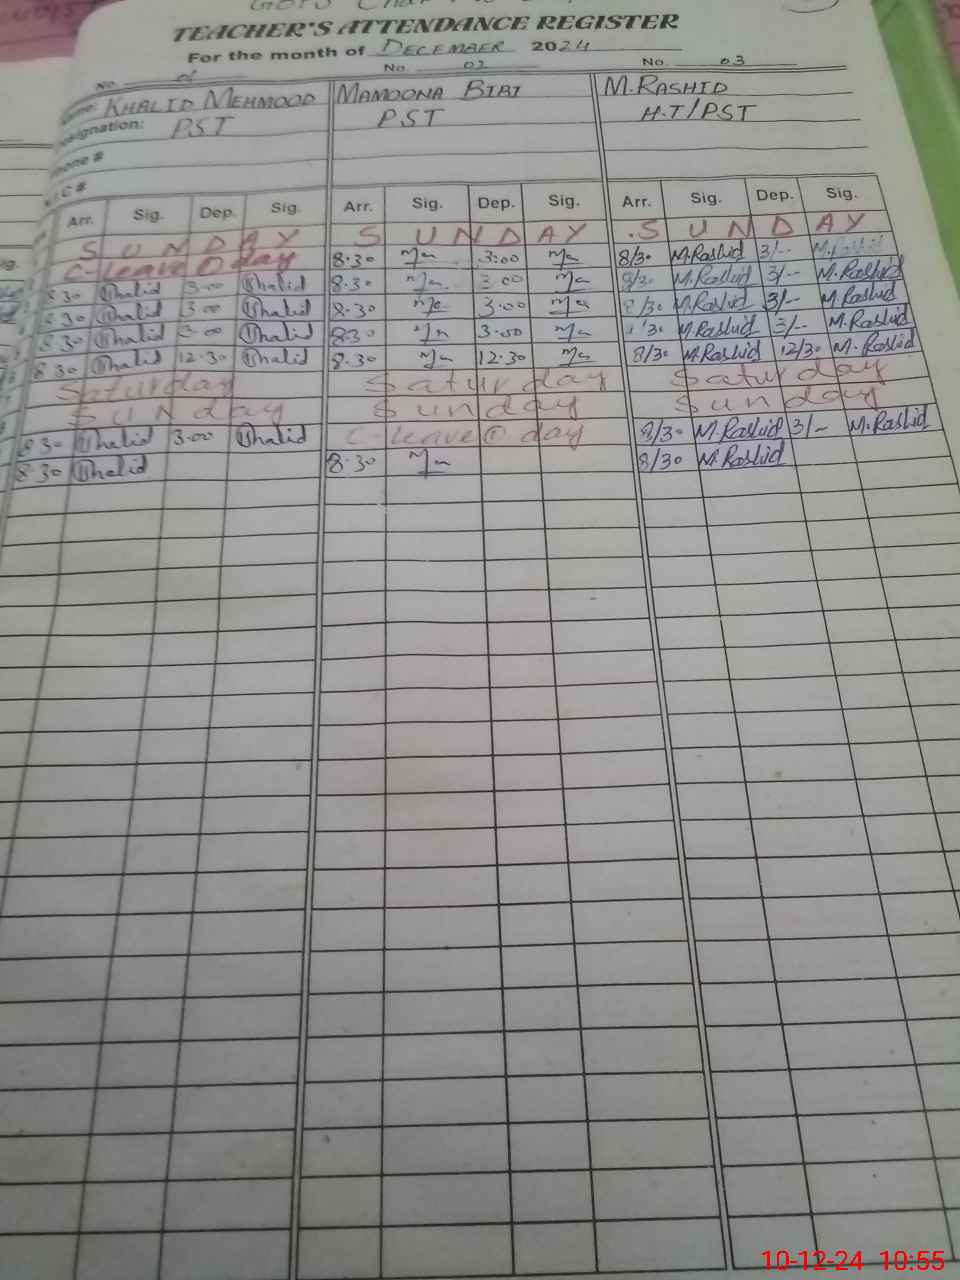 TEACHER'S ATTENDANCE REGISTER
For the month of DECEMBER 2024
No. 01 No. 02 No. 03
KHALID MEHMOOD MAMOONA BIBI M.RASHID
esignation: PST PST H.T/PST
one #
I.C #
Arr. Sig. Dep. Sig. Arr. Sig. Dep. Sig. Arr. Sig. Dep. Sig.
SUNDAY SUNDAY SUNDAY
C-leave ① day 8.30 3:00 8/30 M.Rashid 3/-- M.Rashid
8.30 Khalid 3.00 Khalid 8.30 3.00 8/30 M.Rashid 3/-- M.Rashid
8.30 Khalid 3.00 Khalid 8.30 3.00 8/30 M.Rashid 3/-- M.Rashid
8.30 Khalid 3.00 Khalid 8.30 3.00 8/30 M.Rashid 3/-- M.Rashid
8.30 Khalid 12.30 Khalid 8.30 12.30 8/30 M.Rashid 12/30 M.Rashid
Saturday Saturday Saturday
Sunday Sunday Sunday
8.30 Khalid 3.00 Khalid C-leave ① day 8/30 M.Rashid 3/-- M.Rashid
8.30 Khalid 8.30 8/30 M.Rashid
10-12-24 10:55